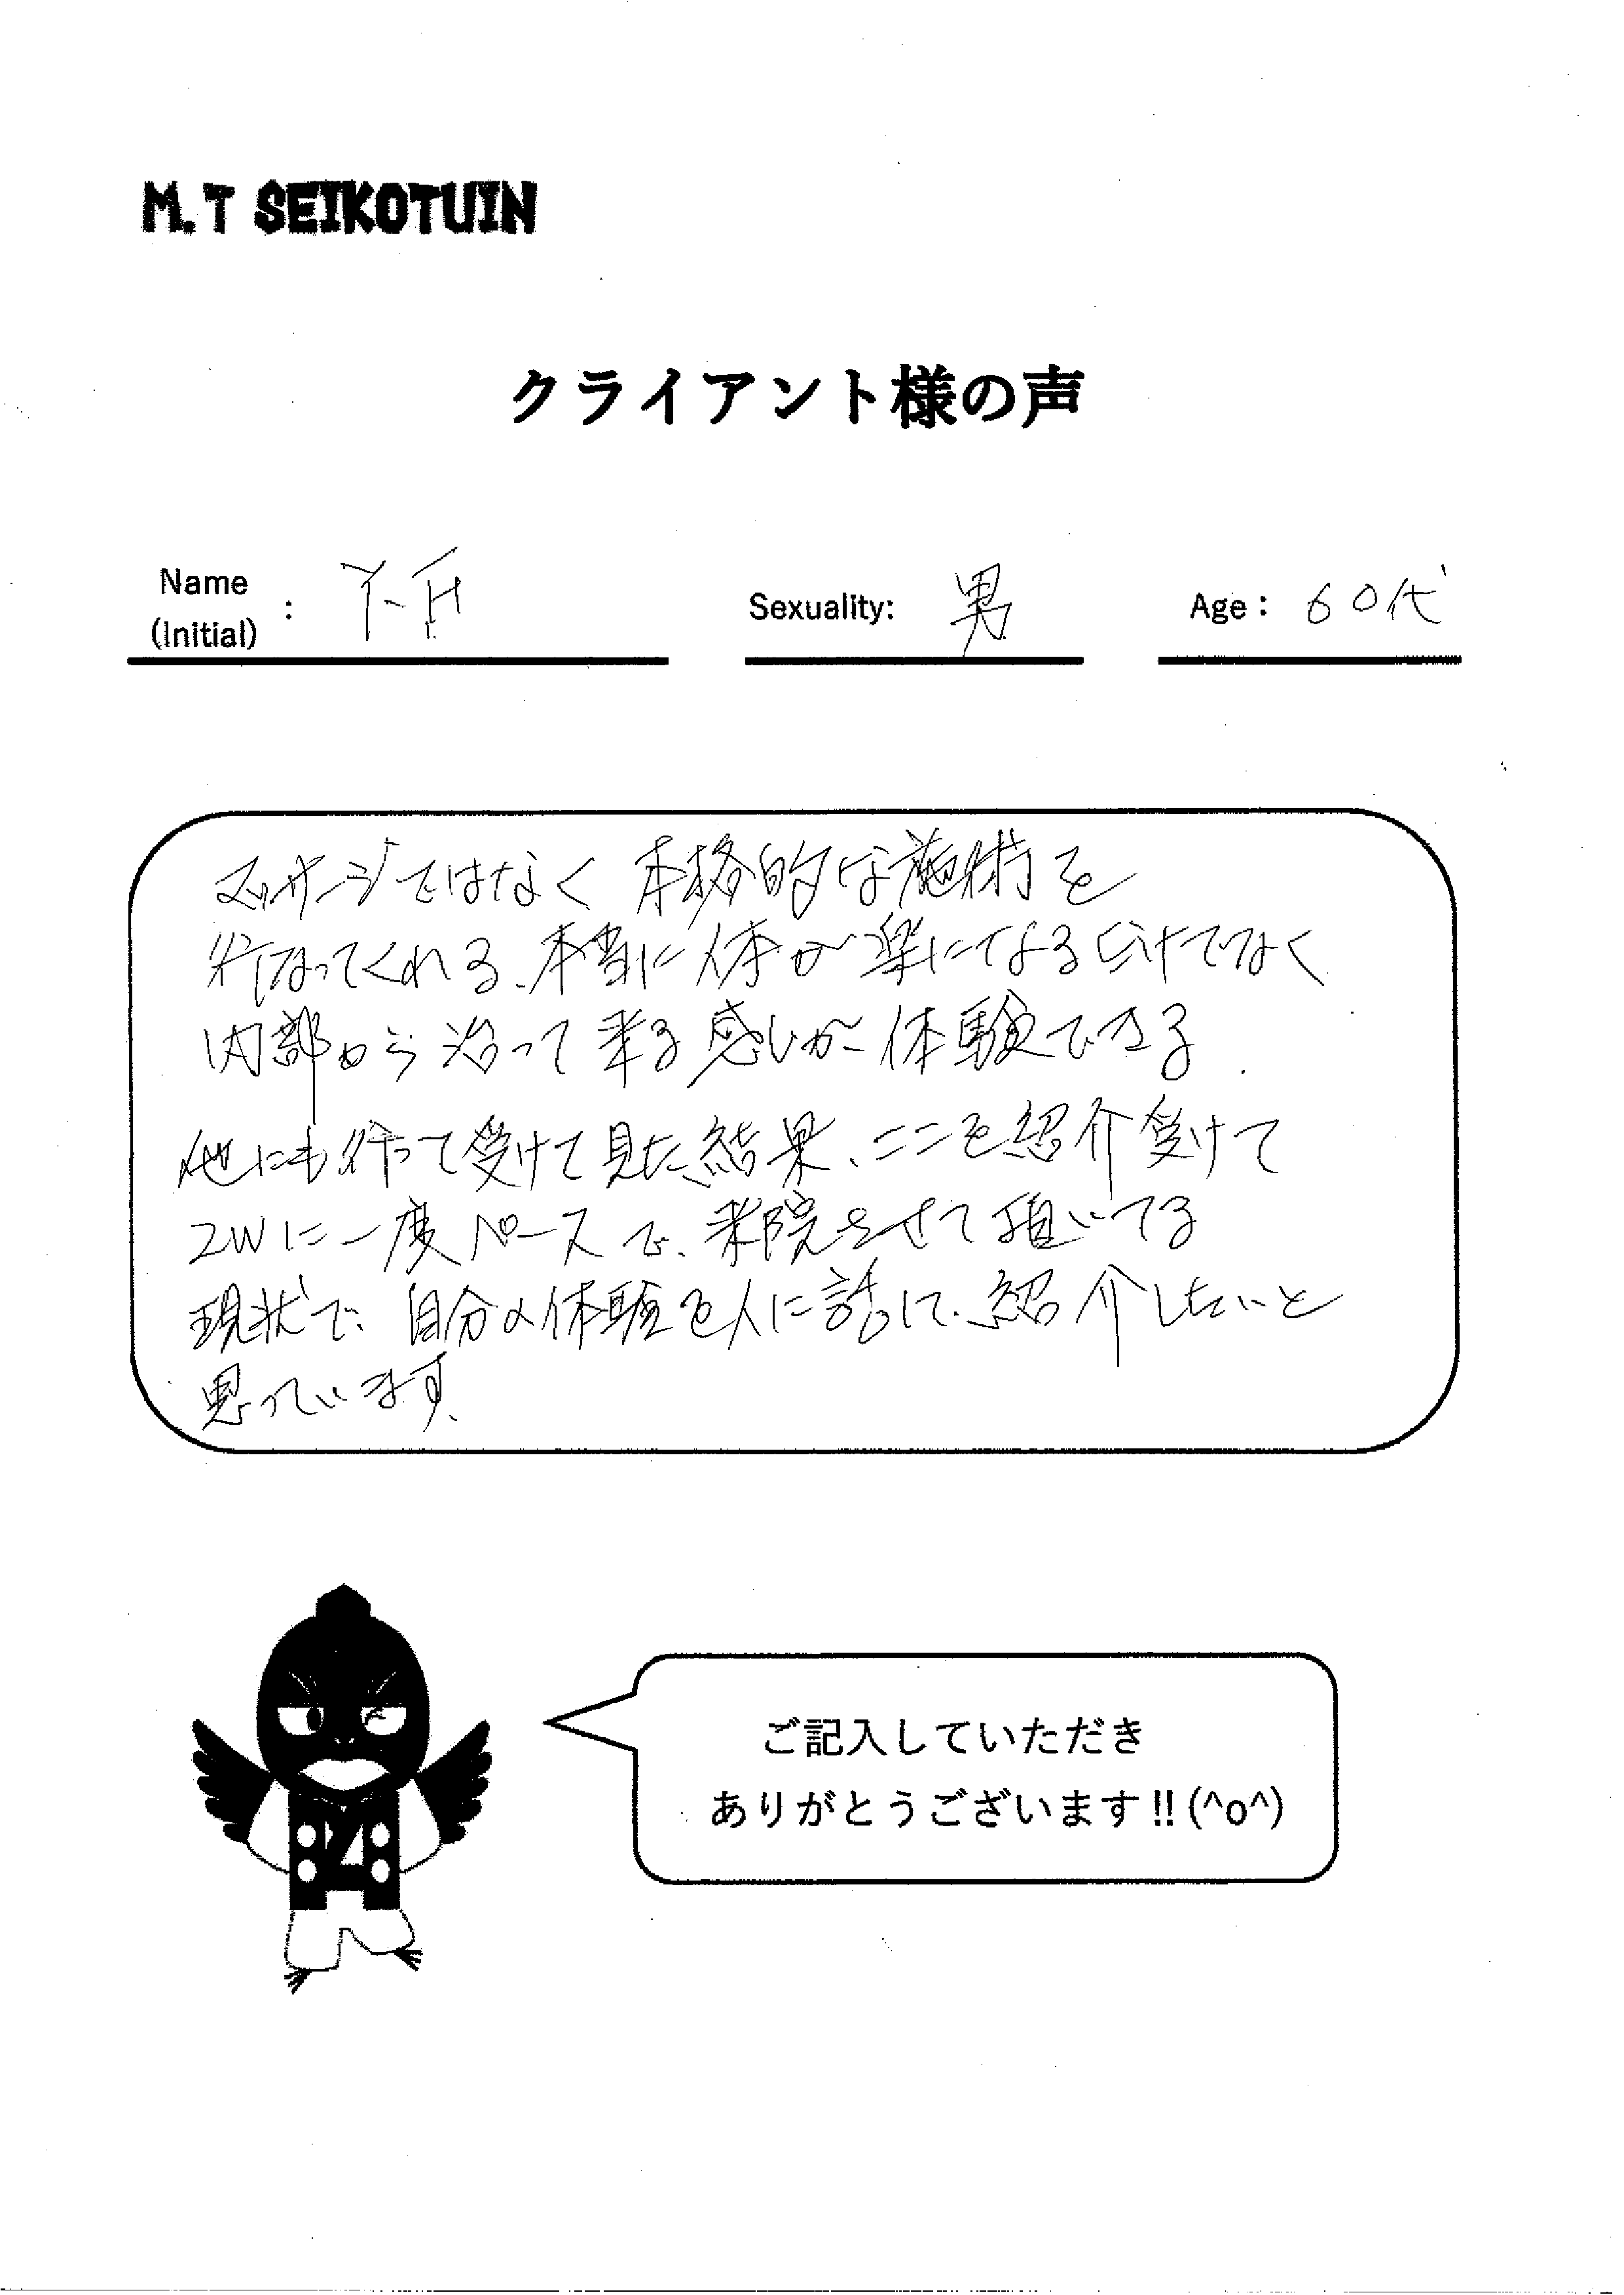 M.T SEIKOTUIN
クライアント様の声
Name
(Initial) :
Sexuality: 男
Age: 60代
マッサージではなく 本格的な施術を
行なってくれる、本当に体が楽になるだけでなく
内部から治って来る感じが体験できる.
他にも行って受けて見た結果、ここを紹介受けて
2Wに一度ペースで、来院させて頂いてる
現状で、自分の体験を人に話して、紹介したいと
思っています、
ご記入していただき
ありがとうございます!!(^o^)